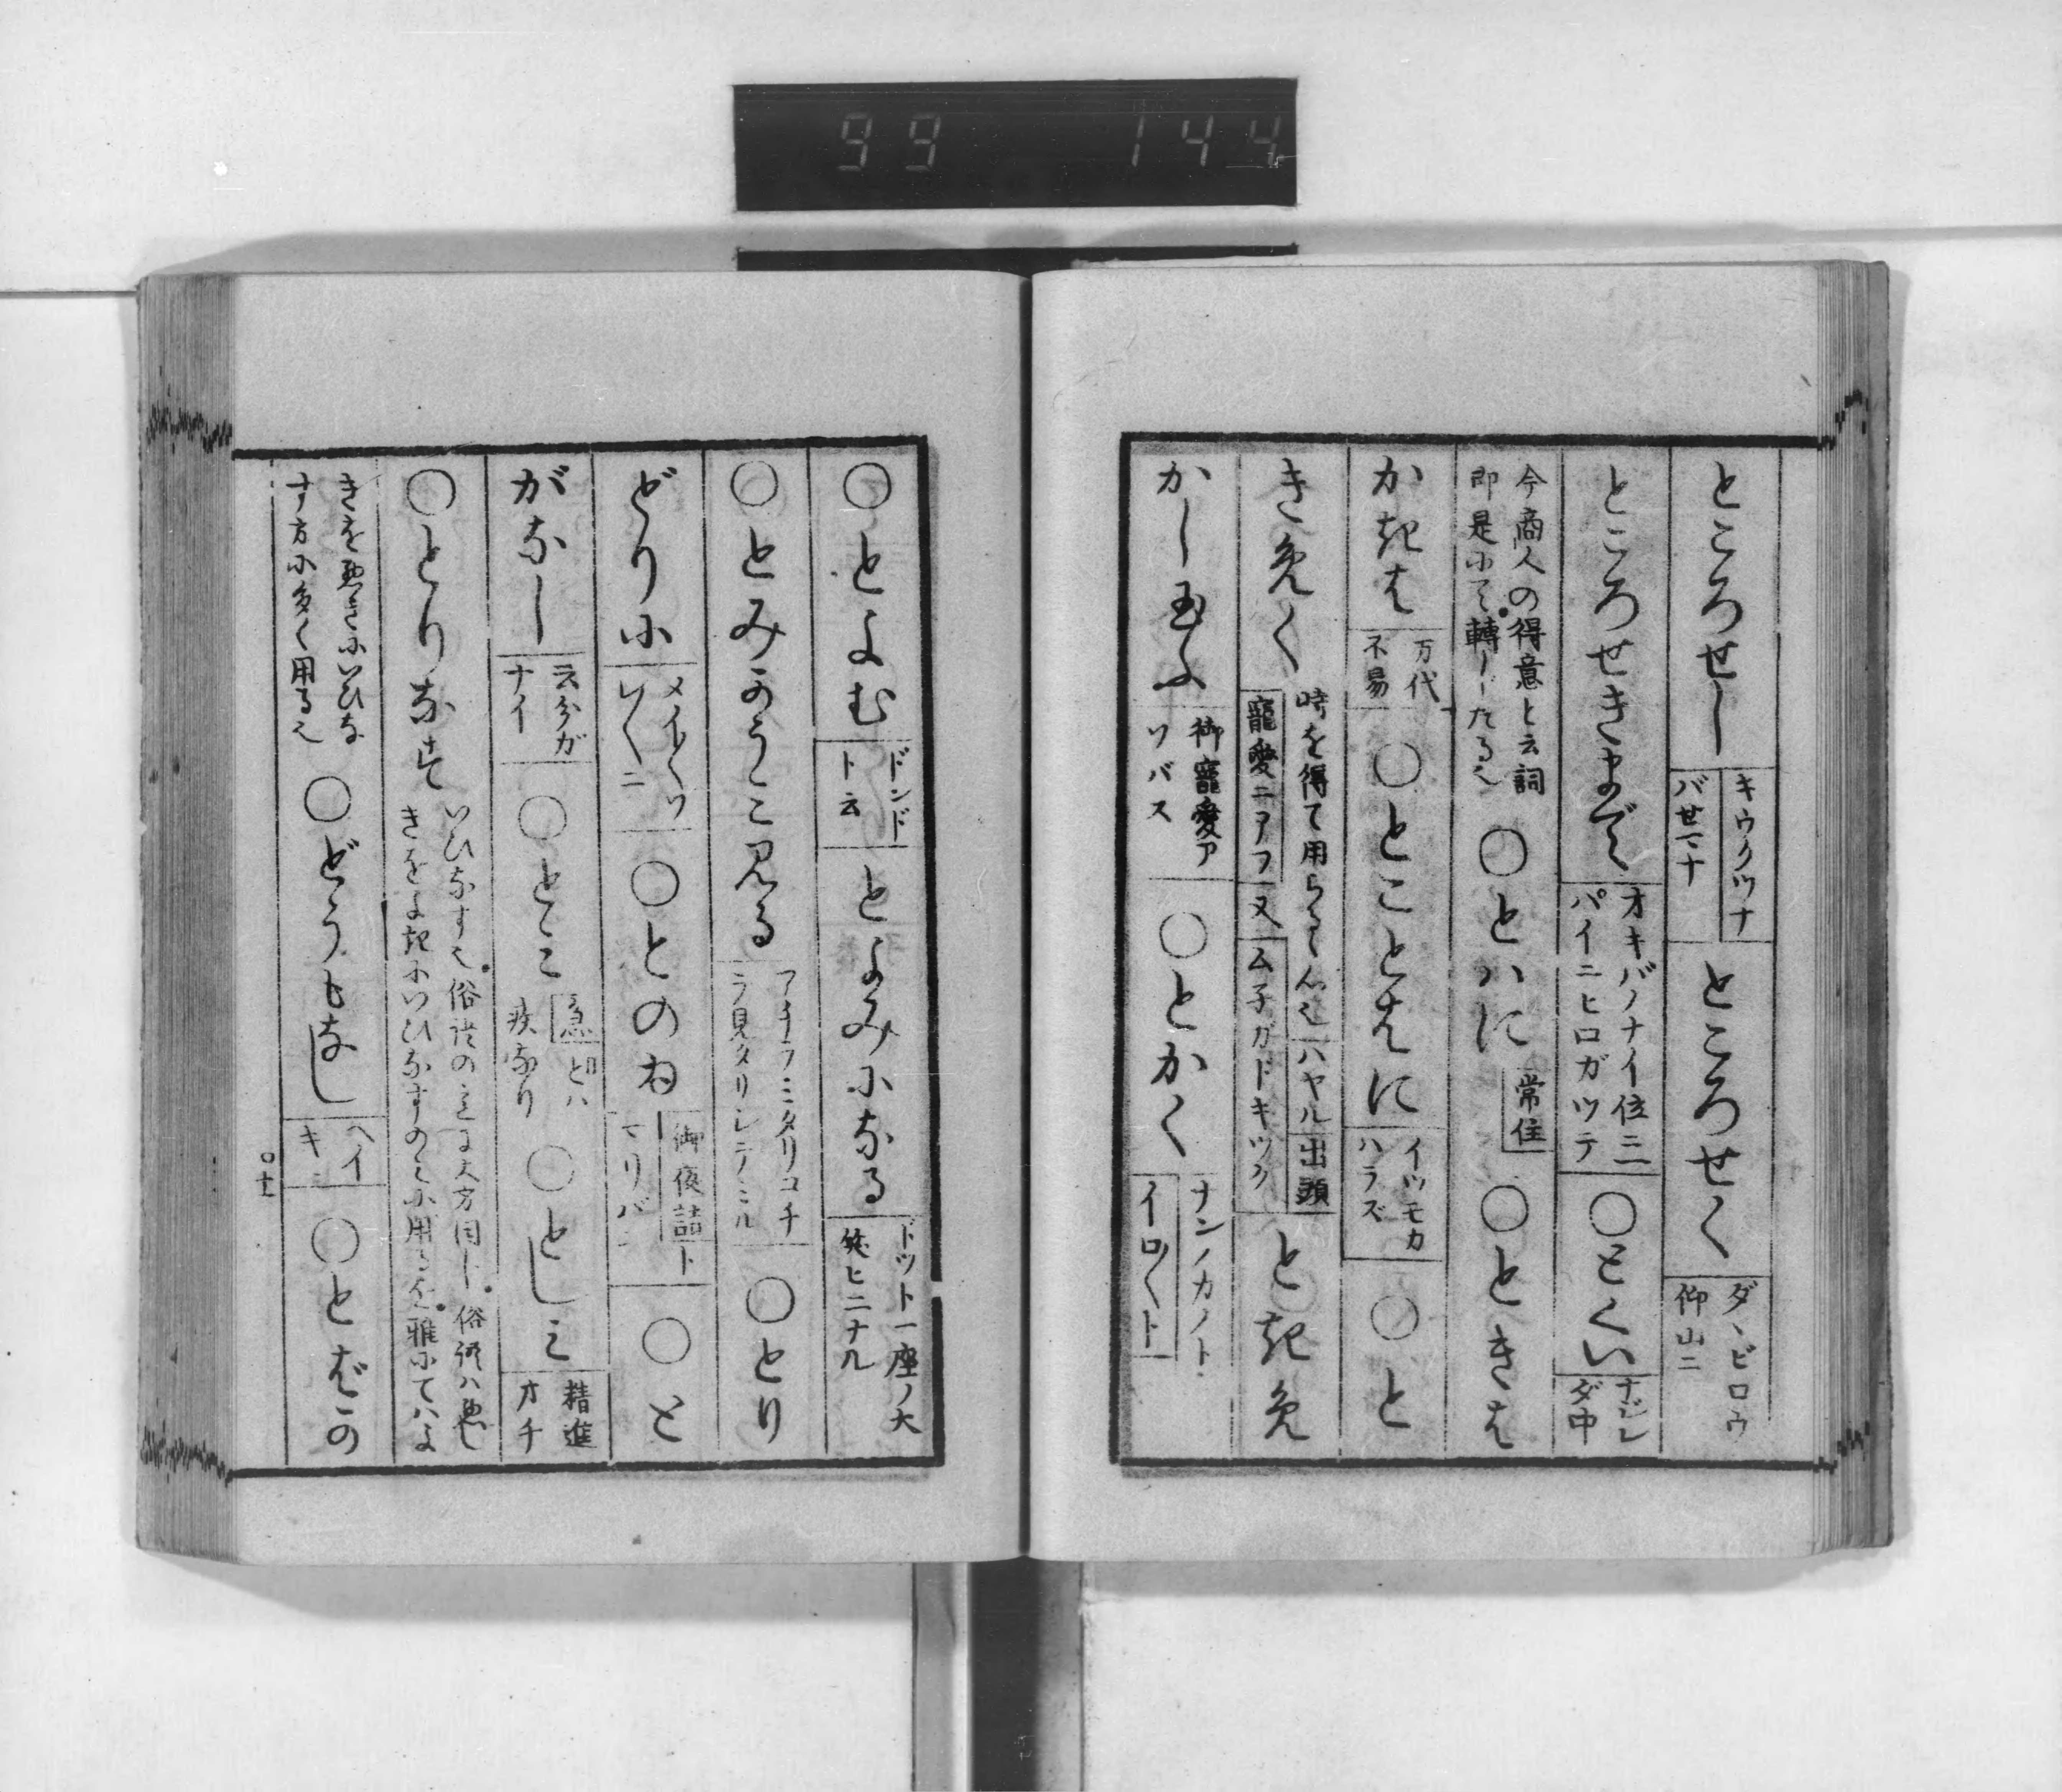 99 144
ところせし キウクツナ バせマナ ところせく ダヽビロウ 仰山ニ
ところせきまで オキバノナイ位ニ 一パイニヒロガツテ ○とくい ナジミ ダ中
今商人の得意と云詞 即是にて轉したる也 ○とハに 常住 ○ときは
かきは 万代 不易 ○とことはに イツモカ ハラズ ○と
きめく 時を得て用らるゝ心也 ハヤル 出頭 寵愛ニアフ 又 ム子ガドキツク ときめ
かし玉ふ 御寵愛ア ソバス ○とかく ナンノカノト イロ〱ト
○とよむ ドンド ト云 とよみになる ドツト一座ノ大 笑ヒニナル
○とみかうみ見る アチラミタリコチ ラ見タリシテミル ○とり
どりに メイ〱ソ レ〱ニ ○とのゐ 御夜詰ト マリバン ○と
がなし 云分ガ ナイ ○とみ 急 とハ 疾なり ○としみ 精進 オチ
○とりなす いひなす也俗語のときは大方同じ俗語ハ悪し きをよきにいひなすのミに用るを雅にてハよ
きを悪きにいひな す方に多く用る也 ○どうもなし ヘイ キニ ○とばかり
口十